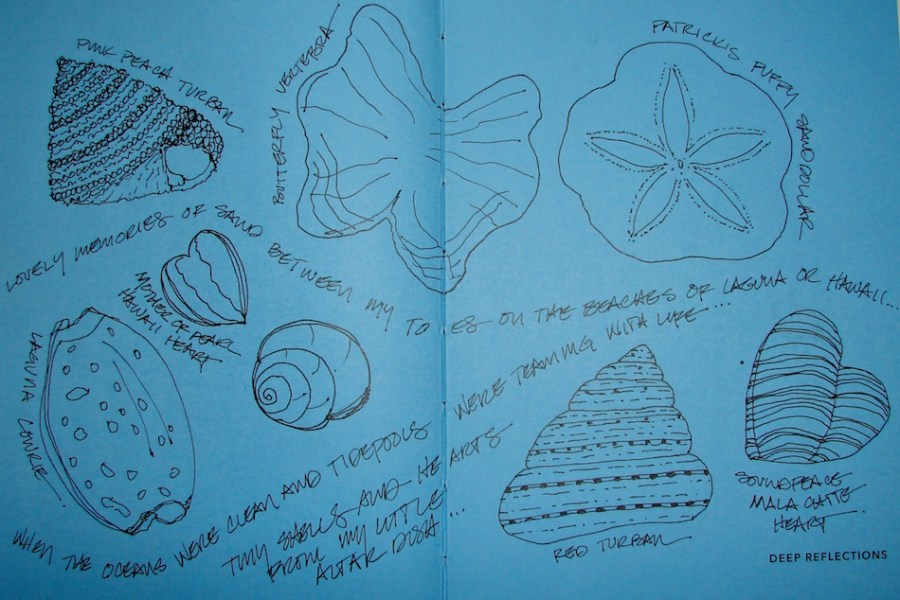 PINK PEACH TURBAN
BUTTERFLY VERTEBRA
PATRICKIS PUFFY SANDDOLLAR
LOVELY MEMORIES OF SAND BETWEEN MY TOES ON THE BEACHES OF LAGUNA OR HAWAII...
MOTHER OF PEARL
HAWAII
HEART
LAGUNA COWRIE
WHEN THE OCEANS WERE CLEAN AND TIDEPOOLS WERE TEAMING WITH LIFE...
TINY SHELLS AND HEARTS
FROM MY LITTLE
ALTAR DISH...
RED TURBAN
SOUNDPEACE
MALACHITE
HEART
DEEP REFLECTIONS